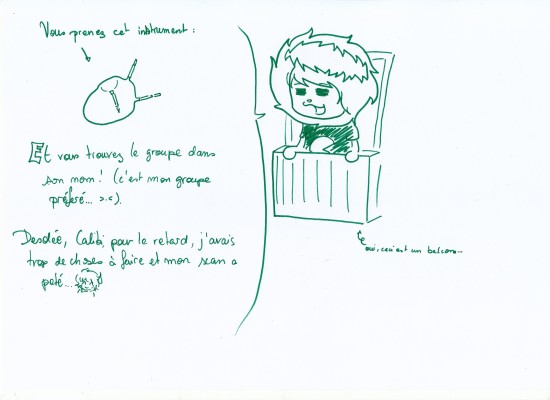 Vous prenez cet instrument :
Et vous trouvez le groupe dans
son nom ! (c'est mon groupe
préféré... >.<).
Desolée, Calibi pour le retard, j'avais
trop de choses à faire et mon scan a
peté...
oui, ceci est un balcon...